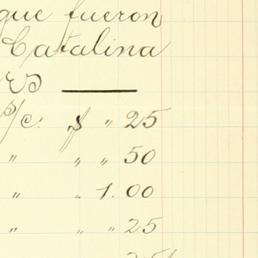 que fueron
Catalina
P/c. $ " 25
" " " 50
" " 1.00
" " " 25